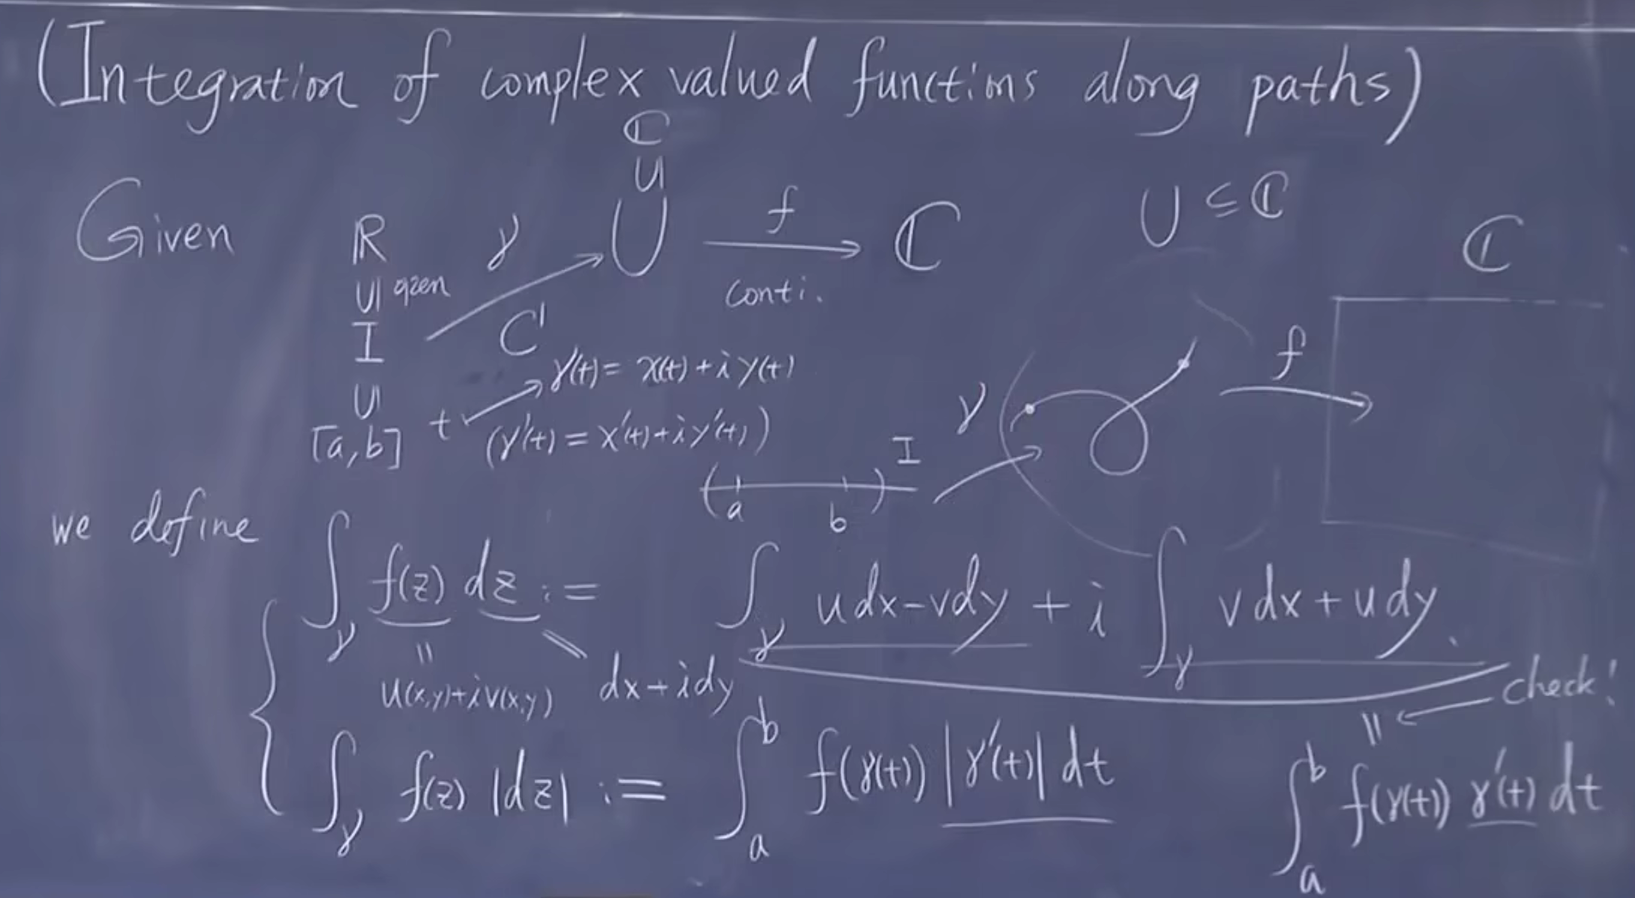 (Integration of complex valued functions along paths)
ℂ
∪|
Given ℝ γ U f ℂ U ⊆ ℂ ℂ
∪| open conti.
I C¹ f
∪| γ(t) = x(t) + i y(t)
[a,b] t (γ'(t) = x'(t) + i y'(t)) γ
I
( a b )
we define ∫_γ f(z) dz := ∫_γ u dx - v dy + i ∫_γ v dx + u dy.
|| \\
u(x,y) + i v(x,y) dx + i dy
|| ← check!
∫_γ f(z) |dz| := ∫_a^b f(γ(t)) |γ'(t)| dt ∫_a^b f(γ(t)) γ'(t) dt